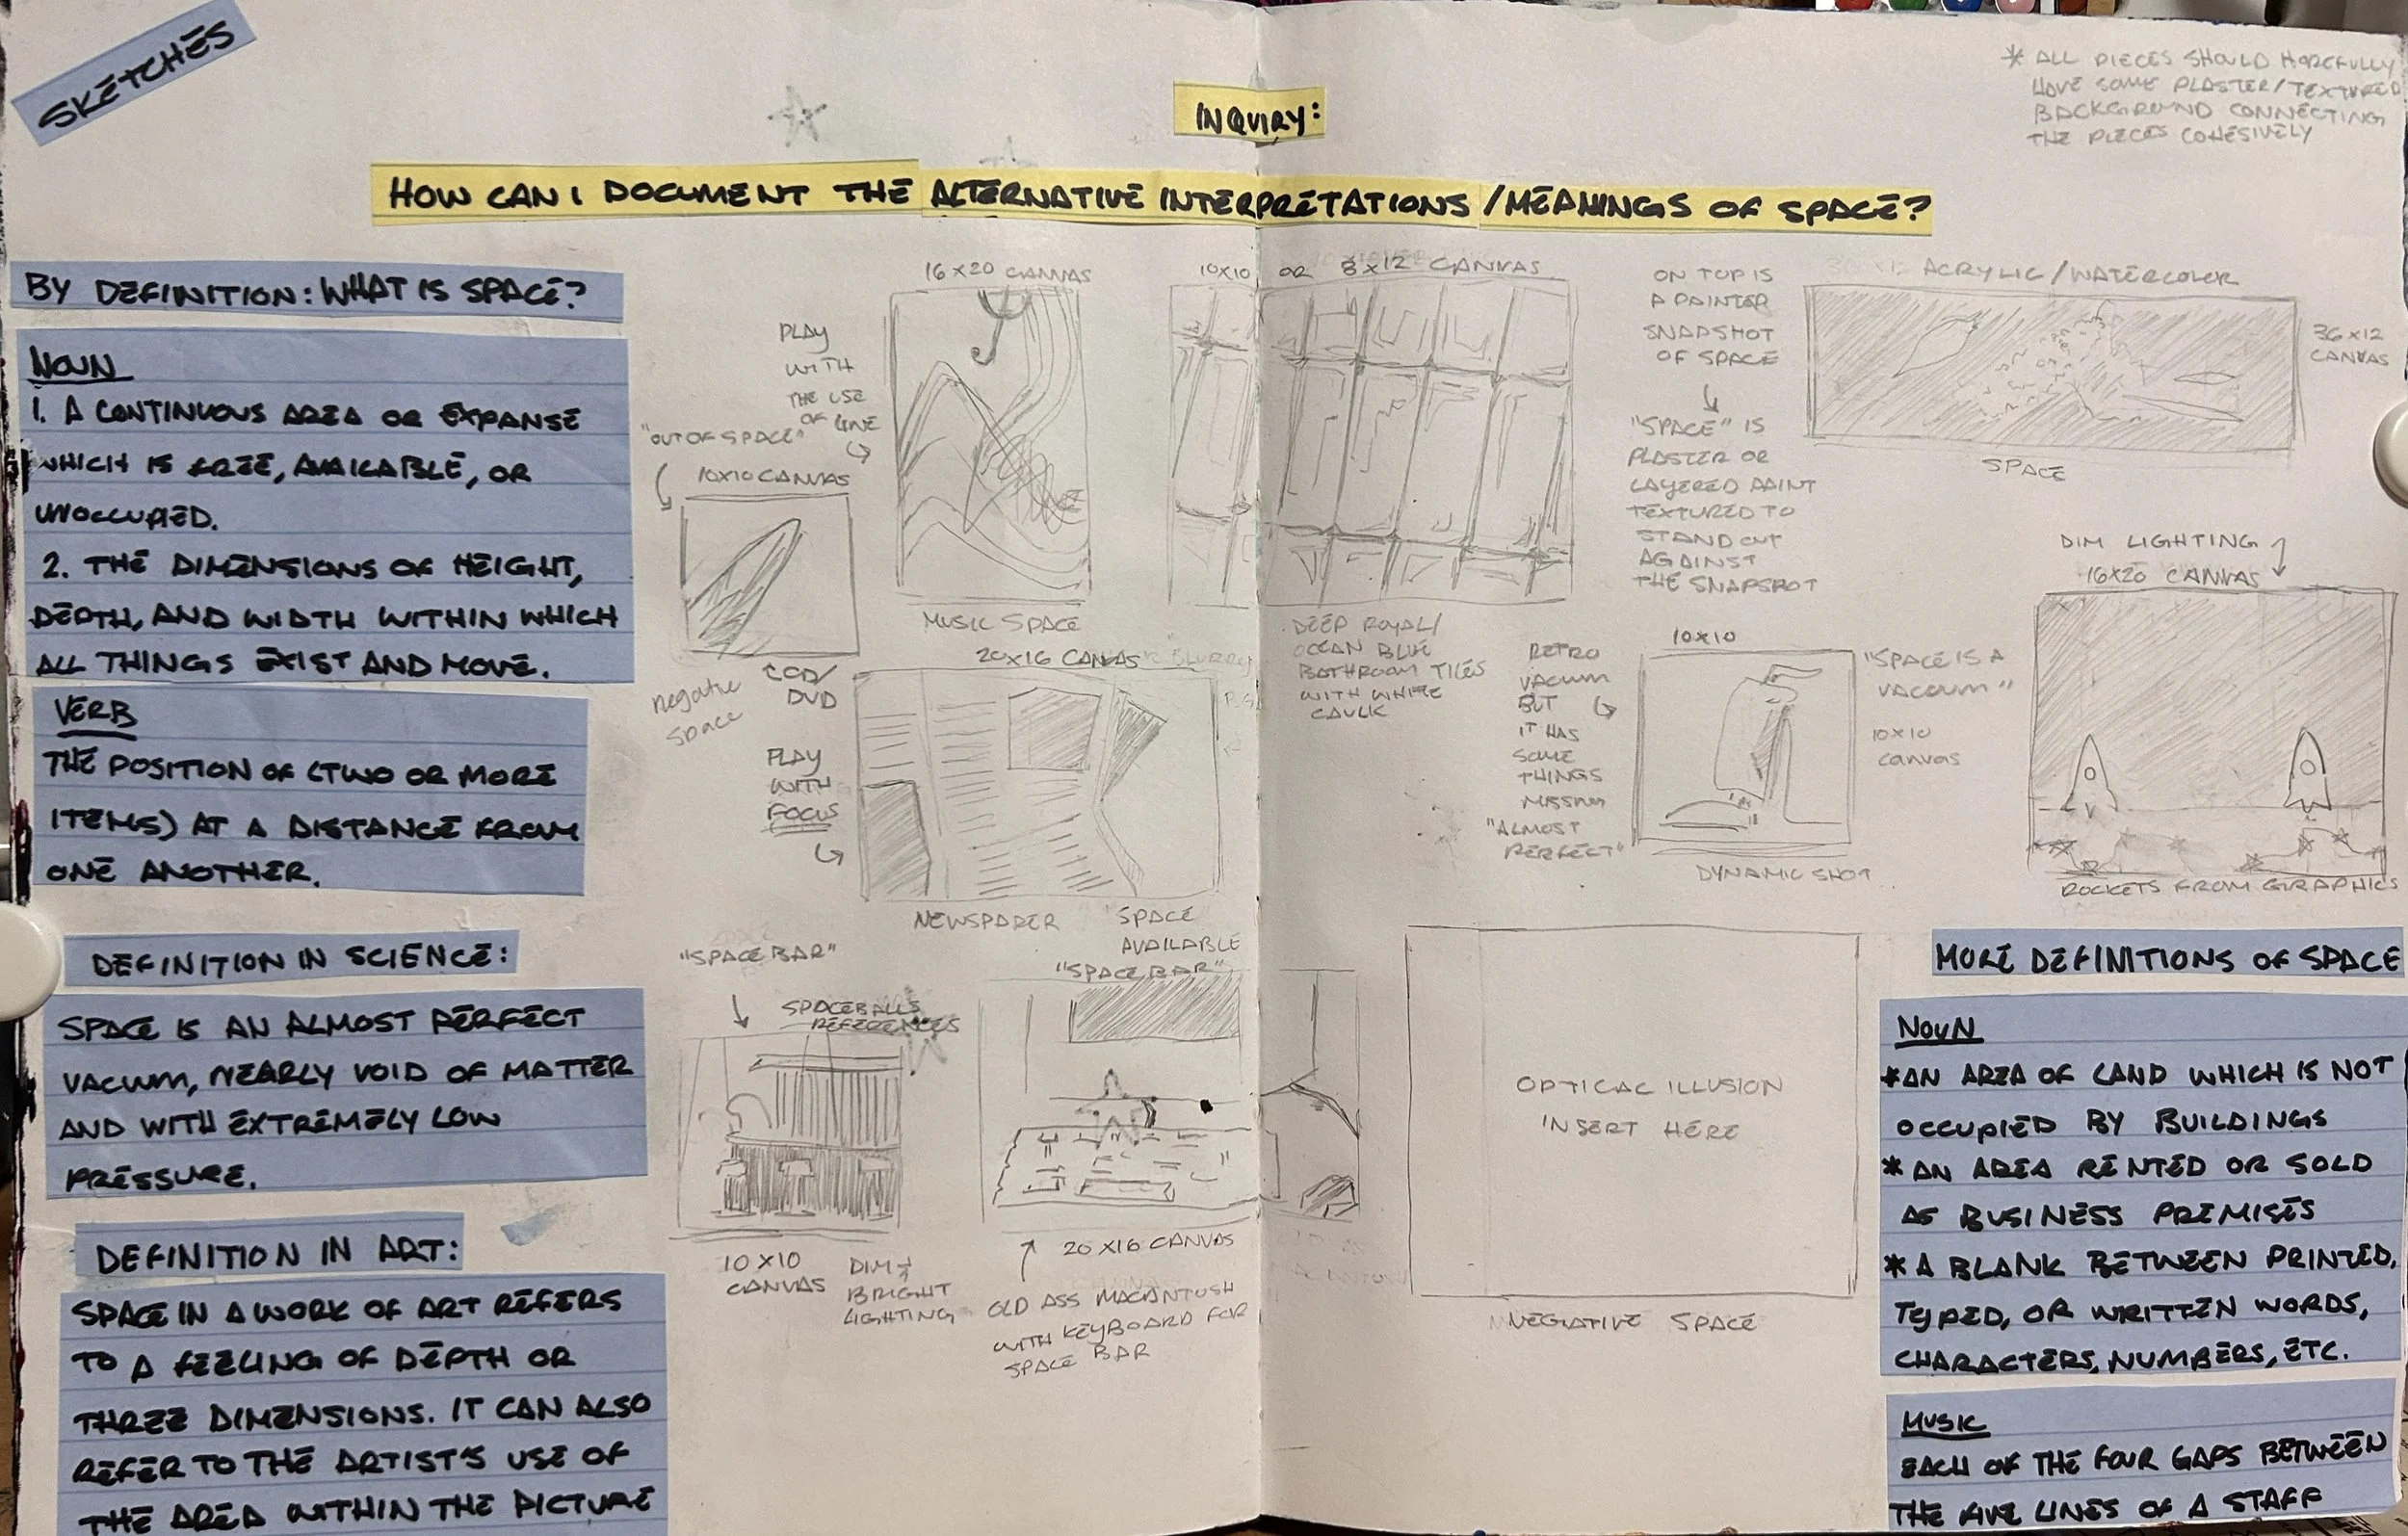 SKETCHES
* ALL PIECES SHOULD HOPEFULLY
HAVE SOME PLASTER/TEXTURED
BACKGROUND CONNECTING
THE PIECES COHESIVELY
INQUIRY:
HOW CAN I DOCUMENT THE ALTERNATIVE INTERPRETATIONS/MEANINGS OF SPACE?
BY DEFINITION: WHAT IS SPACE?
NOUN
1. A CONTINUOUS AREA OR EXPANSE
WHICH IS FREE, AVAILABLE, OR
UNOCCUPIED.
2. THE DIMENSIONS OF HEIGHT,
DEPTH, AND WIDTH WITHIN WHICH
ALL THINGS EXIST AND MOVE.
VERB
THE POSITION OF (TWO OR MORE
ITEMS) AT A DISTANCE FROM
ONE ANOTHER.
DEFINITION IN SCIENCE:
SPACE IS AN ALMOST PERFECT
VACUUM, NEARLY VOID OF MATTER
AND WITH EXTREMELY LOW
PRESSURE.
DEFINITION IN ART:
SPACE IN A WORK OF ART REFERS
TO A FEELING OF DEPTH OR
THREE DIMENSIONS. IT CAN ALSO
REFER TO THE ARTIST'S USE OF
THE AREA WITHIN THE PICTURE
16X20 CANVAS
PLAY
WITH
THE USE
OF LINE
MUSIC SPACE
"OUT OF SPACE"
10X10 CANVAS
CD/
DVD
negative
space
20X16 CANVAS
BLURRY
PLAY
WITH
FOCUS
NEWSPAPER
SPACE
AVAILABLE
"SPACE BAR"
SPACEBALLS
REFERENCES
10X10
CANVAS
DIM &
BRIGHT
LIGHTING
"SPACE BAR"
20X16 CANVAS
OLD ASS MACKINTOSH
WITH KEYBOARD FOR
SPACE BAR
10X10 OR 8X12 CANVAS
DEEP ROYAL/
OCEAN BLUE
BATHROOM TILES
WITH WHITE
CAULK
ON TOP IS
A PAINTER
SNAPSHOT
OF SPACE
"SPACE" IS
PLASTER OR
LAYERED PAINT
TEXTURED TO
STAND OUT
AGAINST
THE SNAPSHOT
ACRYLIC/WATERCOLOR
36X12
CANVAS
SPACE
RETRO
VACUUM
BUT
IT HAS
SOME
THINGS
MISSING
"ALMOST
PERFECT"
10X10
"SPACE IS A
VACUUM"
10X10
canvas
DYNAMIC SHOT
DIM LIGHTING
16X20 CANVAS
ROCKETS FROM GIRAPHICS
OPTICAL ILLUSION
INSERT HERE
NEGATIVE SPACE
MORE DEFINITIONS OF SPACE
NOUN
*AN AREA OF LAND WHICH IS NOT
OCCUPIED BY BUILDINGS
*AN AREA RENTED OR SOLD
AS BUSINESS PREMISES
*A BLANK BETWEEN PRINTED,
TYPED, OR WRITTEN WORDS,
CHARACTERS, NUMBERS, ETC.
MUSIC
EACH OF THE FOUR GAPS BETWEEN
THE FIVE LINES OF A STAFF